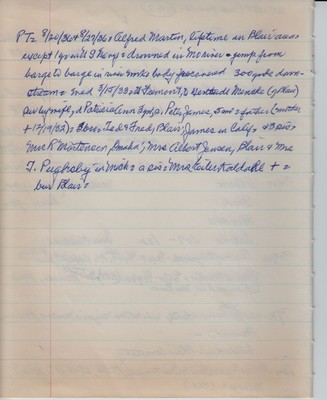 PT= 8/20/36 & 8/27/36 = Alfred Martin, lifetime on Blair area
except 1 yr with 9 Navy = drowned in Mo river = jump from
barge to barge in river works body recovered 300 yds down-
stream = mad 3/15/33 at Fremont, to Gertrude Menske (of Blair)
sur by wife, d Patricia Ann 2 yr, s Peter James, 5 mo = father (mother
+ 12/19/32) = bros Ted & Fred, Blair; James in Calif & 3 sis =
Mrs R Mortensen, Omaha; Mrs Albert Jensen, Blair & Mrs
T. Pugksley in Mich = a sis = Mrs Carter Kaldahl + =
bur Blair =